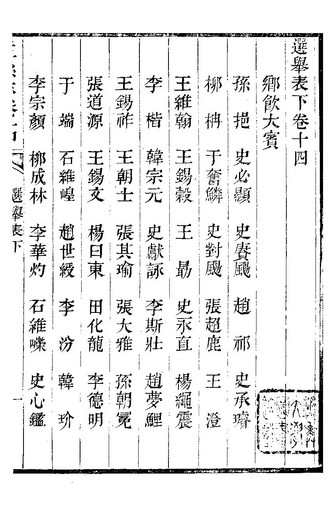 選舉表下卷十四
鄉飲大賓
孫挹 史必顯 史賡颺 趙祁 史承璿
柳柟 于奮鱗 史對颺 張超鹿 王澄
王維翰 王錫穀 王勗 史永直 楊繩震
李楷 韓宗元 史獻詠 李斯壯 趙夢鯉
王錫祚 王朝士 張其瑜 張大雅 孫朝冕
張道源 王錫爻 楊曰東 田化龍 李德明
于端 石維嵿 趙世綬 李汾 韓玠
李宗顏 柳成林 李華灼 石維嶸 史心鑑
選舉表下
一